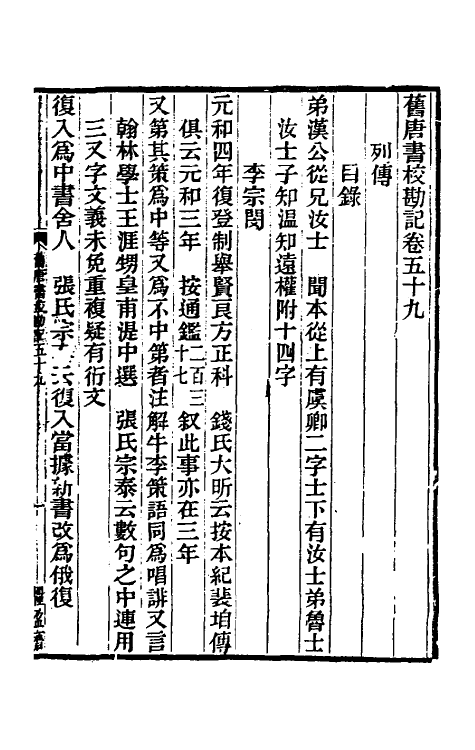 舊唐書校勘記卷五十九
列傳
目錄
弟漢公從兄汝士　聞本從上有虞卿二字士下有汝士弟魯士
汝士子知温知遠權附十四字
李宗閔
元和四年復登制舉賢良方正科　錢氏大昕云按本紀裴垍傳
俱云元和三年　按通鑑二百三十七叙此事亦在三年
又第其策爲中等又爲不中第者注解牛李策語同爲唱誹又言
翰林學士王涯甥皇甫湜中選　張氏宗泰云數句之中連用
三又字文義未免重複疑有衍文
復入爲中書舍人　張氏宗　云復入當據新書改爲俄復